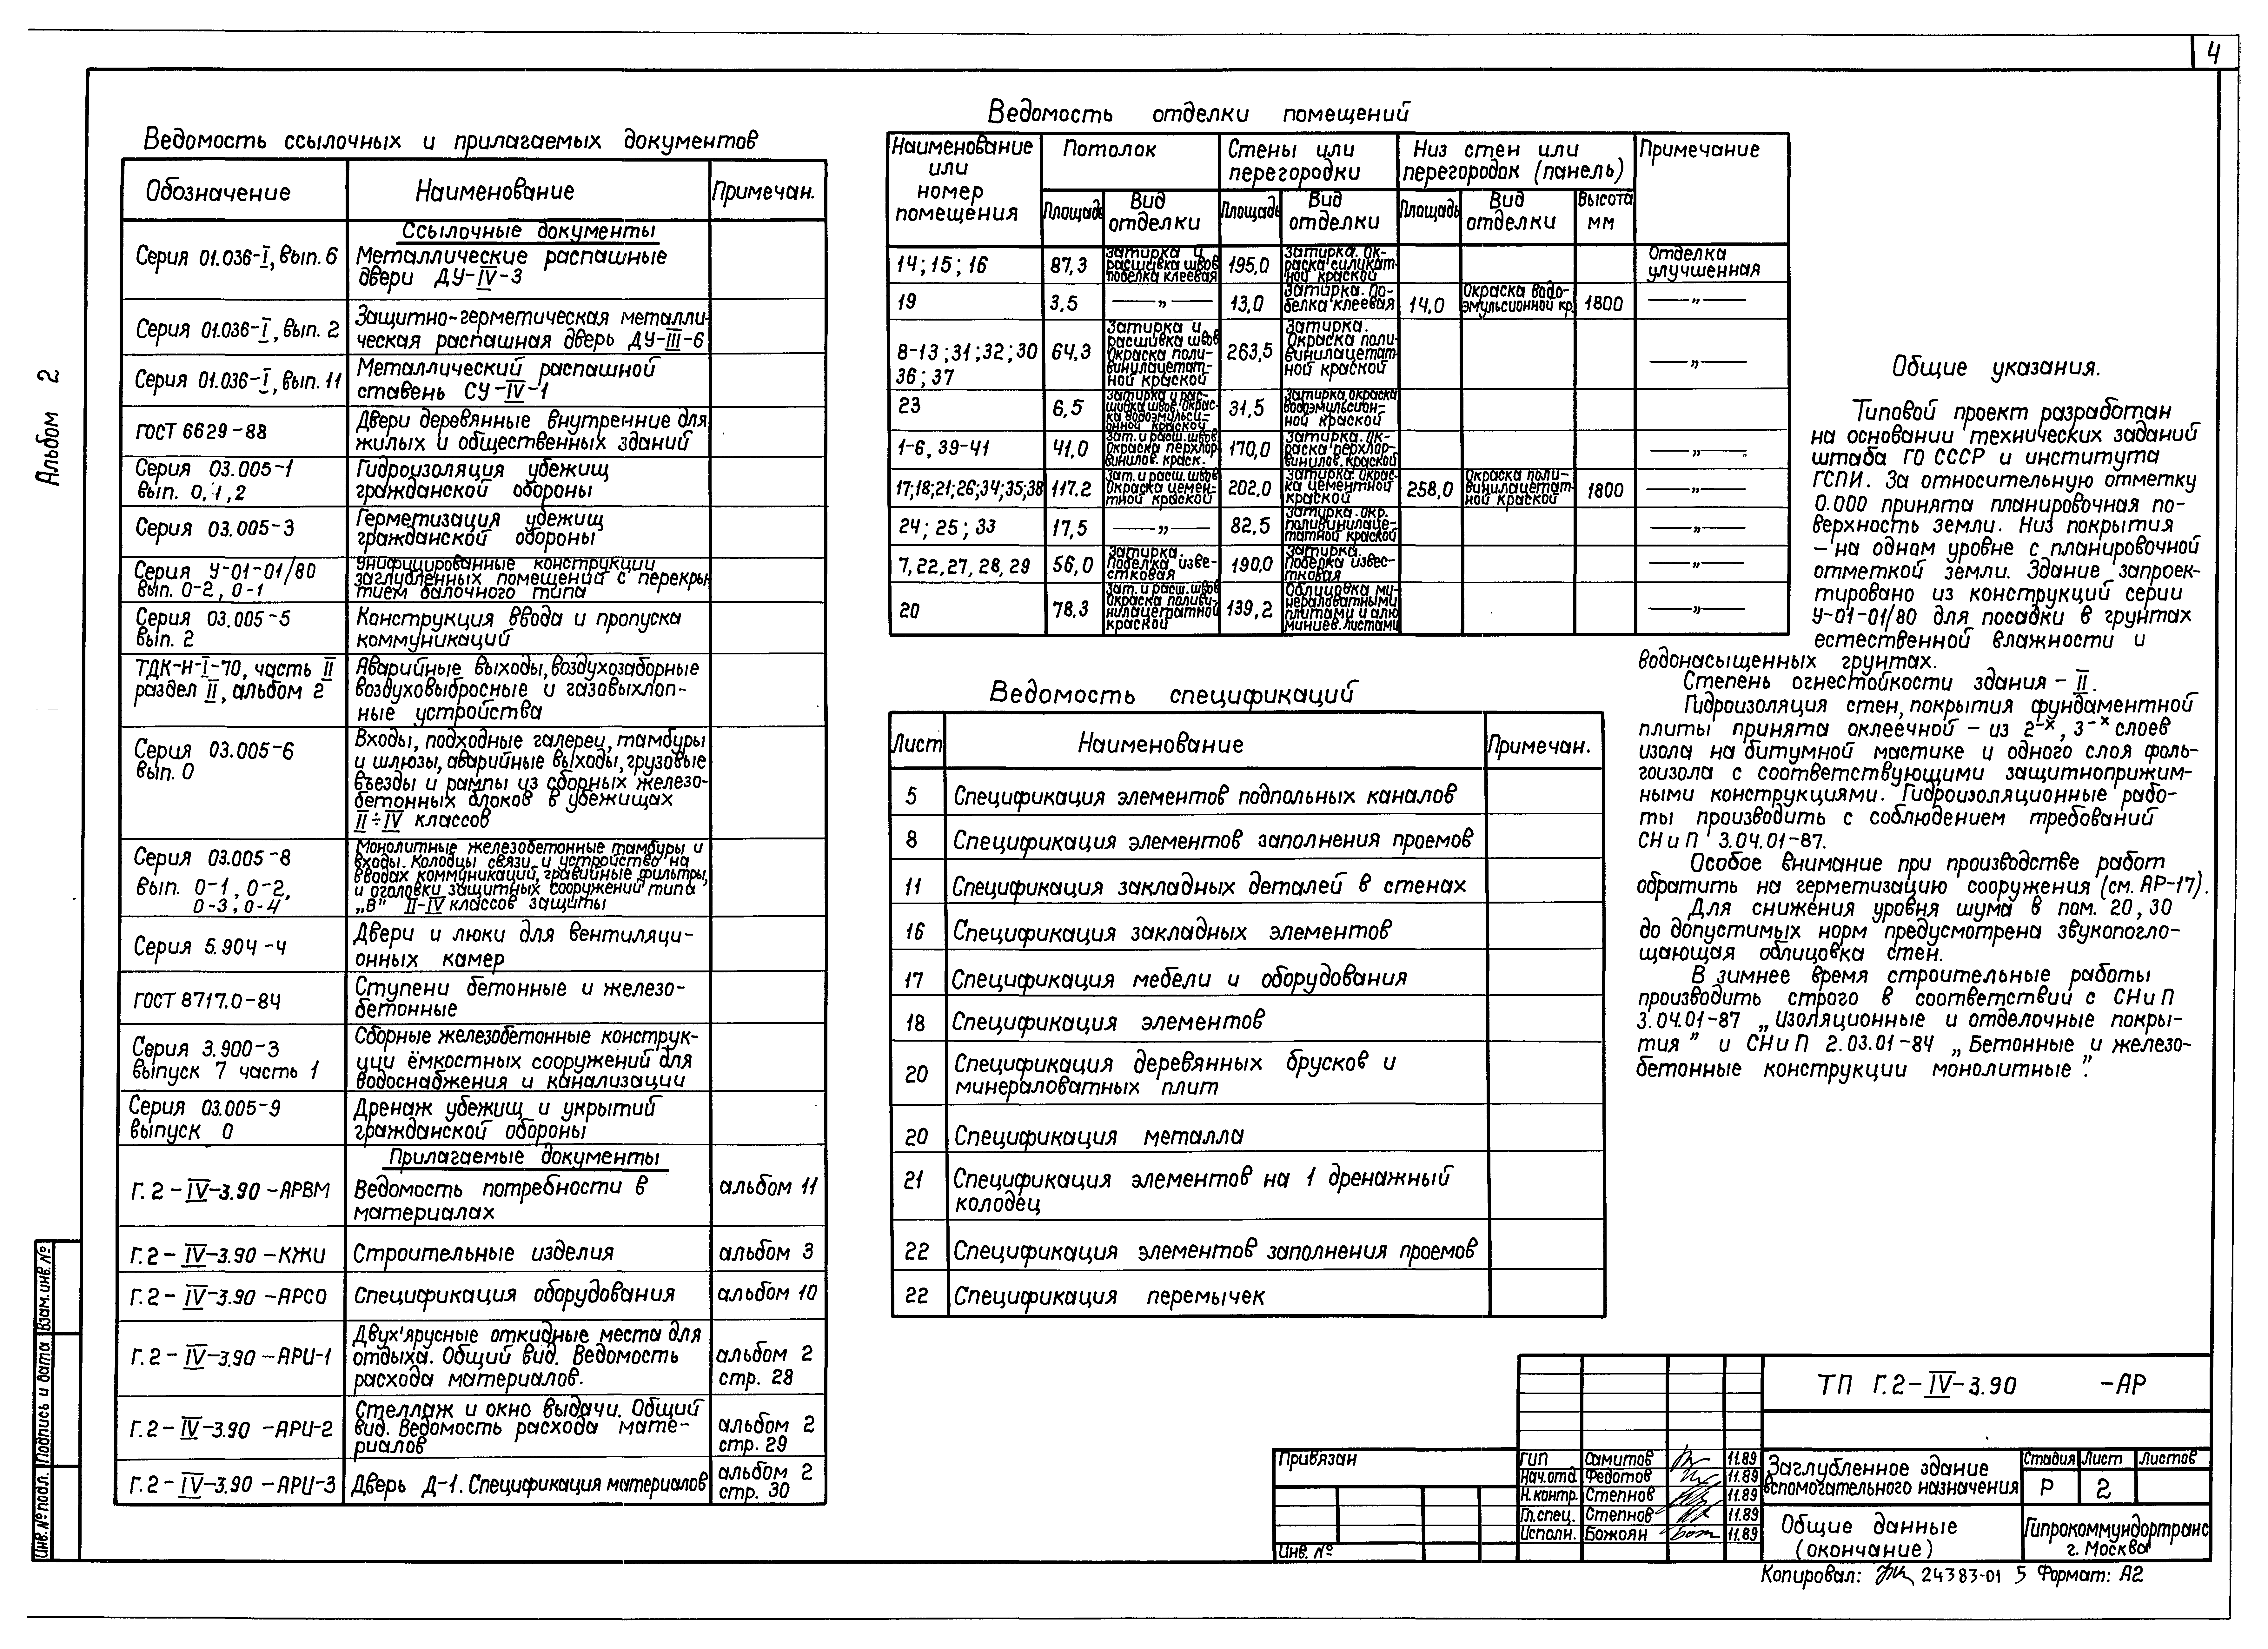 4
Альбом 2
Ведомость ссылочных и прилагаемых документов
Обозначение
Наименование
Примечан.
Ссылочные документы
Серия 01.036-I, вып. 6
Металлические распашные
двери ДУ-IV-3
Серия 01.036-I, вып. 2
Защитно-герметическая металли-
ческая распашная дверь ДУ-III-6
Серия 01.036-I, вып. 11
Металлический распашной
ставень СУ-IV-1
ГОСТ 6629-88
Двери деревянные внутренние для
жилых и общественных зданий
Серия 03.005-1
вып. 0,1,2
Гидроизоляция убежищ
гражданской обороны
Серия 03.005-3
Герметизация убежищ
гражданской обороны
Серия У-01-01/80
вып. 0-2, 0-1
Унифицированные конструкции
заглубленных помещений с перекры
тием балочного типа
Серия 03.005-5
вып. 2
Конструкция ввода и пропуска
коммуникаций
ТДК-Н-I-70, часть II
раздел II, альбом 2
Аварийные выходы, воздухозаборные
воздуховыбросные и газовыхлоп-
ные устройства
Серия 03.005-6
вып. 0
Входы, подходные галереи, тамбуры
и шлюзы, аварийные выходы, грузовые
въезды и рампы из сборных железо-
бетонных блоков в убежищах
II÷IV классов
Серия 03.005-8
вып. 0-1, 0-2,
0-3, 0-4
Монолитные железобетонные тамбуры и
входы. Колодцы связи и устройство на
вводах коммуникаций, гравийные фильтры,
и оголовки защитных сооружений типа
„В" II-IV классов защиты
Серия 5.904-4
Двери и люки для вентиляци-
онных камер
ГОСТ 8717.0-84
Ступени бетонные и железо-
бетонные
Серия 3.900-3
выпуск 7 часть 1
Сборные железобетонные конструк-
ции ёмкостных сооружений для
водоснабжения и канализации
Серия 03.005-9
выпуск 0
Дренаж убежищ и укрытий
гражданской обороны
Прилагаемые документы
Г.2-IV-3.90-АРВМ
Ведомость потребности в
материалах
альбом 11
Г.2-IV-3.90-КЖИ
Строительные изделия
альбом 3
Г.2-IV-3.90-АРСО
Спецификация оборудования
альбом 10
Г.2-IV-3.90-АРИ-1
Двух'ярусные откидные места для
отдыха. Общий вид. Ведомость
расхода материалов.
альбом 2
стр. 28
Г.2-IV-3.90-АРИ-2
Стеллаж и окно выдачи. Общий
вид. Ведомость расхода мате-
риалов
альбом 2
стр. 29
Г.2-IV-3.90-АРИ-3
Дверь Д-1. Спецификация материалов
альбом 2
стр. 30
Ведомость отделки помещений
Наименование
или
номер
помещения
Потолок
Стены или
перегородки
Низ стен или
перегородок (панель)
Примечание
Площадь
Вид
отделки
Площадь
Вид
отделки
Площадь
Вид
отделки
Высота
мм
14; 15; 16
87,3
Затирка и
расшивка швов
побелка клеевая
195,0
Затирка. Ок-
раска силикат-
ной краской
Отделка
улучшенная
19
3,5
—„—
13,0
Затирка. По-
белка клеевая
14,0
Окраска водо-
эмульсионной кр.
1800
—„—
8-13; 31; 32; 30
36; 37
64,3
Затирка и
расшивка швов
Окраска поли-
винилацетат-
ной краской
263,5
Затирка.
Окраска поли-
винилацетат-
ной краской
—„—
23
6,5
Затирка и рас-
шивка швов. окрас-
ка водоэмульси-
онной краской
31,5
Затирка, окраска
водоэмульсион-
ной краской
1-6, 39-41
41,0
Зат. и расш. швов.
Окраска перхлор-
винилов. краск.
170,0
Затирка. Ок-
раска перхлор-
винилов. краской
—„—
17;18;21;26;34;35;38
117.2
Зат. и расш. швов
Окраска цемен-
тной краской
202.0
Затирка. Окрас-
ка цементной
краской
258,0
Окраска поли-
винилацетат-
ной краской
1800
—„—
24; 25; 33
17,5
—„—
82.5
Затирка. окр.
поливинилаце-
татной краской
—„—
7,22,27, 28, 29
56,0
Затирка.
Побелка изве-
стковая
190,0
Затирка.
Побелка извес-
тковая
—„—
20
78.3
Зат. и расш. швов
Окраска поливи-
нилацетатной
краской
139,2
Облицовка ми-
нераловатными
плитами и алю
миниев. листами
—„—
Ведомость спецификаций
Лист
Наименование
Примечан.
5
Спецификация элементов подпольных каналов
8
Спецификация элементов заполнения проемов
11
Спецификация закладных деталей в стенах
16
Спецификация закладных элементов
17
Спецификация мебели и оборудования
18
Спецификация элементов
20
Спецификация деревянных брусков и
минераловатных плит
20
Спецификация металла
21
Спецификация элементов на 1 дренажный
колодец
22
Спецификация элементов заполнения проемов
22
Спецификация перемычек
Общие указания.
Типовой проект разработан
на основании технических заданий
штаба ГО СССР и института
ГСПИ. За относительную отметку
0.000 принята планировочная по-
верхность земли. Низ покрытия
—на одном уровне с планировочной
отметкой земли. Здание запроек-
тировано из конструкций серии
У-01-01/80 для посадки в грунтах
естественной влажности и
водонасыщенных грунтах.
Степень огнестойкости здания - II.
Гидроизоляция стен, покрытия фундаментной
плиты принята оклеечной - из 2-х, 3-х слоев
изола на битумной мастике и одного слоя фоль-
гоизола с соответствующими защитноприжим-
ными конструкциями. Гидроизоляционные рабо-
ты производить с соблюдением требований
СНиП 3.04.01-87.
Особое внимание при производстве работ
обратить на герметизацию сооружения (см. АР-17).
Для снижения уровня шума в пом. 20, 30
до допустимых норм предусмотрена звукопогло-
щающая облицовка стен.
В зимнее время строительные работы
производить строго в соответствий с СНиП
3.04.01-87 „Изоляционные и отделочные покры-
тия" и СНиП 2.03.01-84 „Бетонные и железо-
бетонные конструкции монолитные".
ТП Г.2-IV-3.90 -АР
Привязан
Инв. №
ГИП Самитов 11.89
Нач.отд. Федотов 11.89
Н.контр. Степнов 11.89
Гл.спец. Степнов 11.89
Исполн. Божоян 11.89
Заглубленное здание
вспомогательного назначения
Стадия
Лист
Листов
Р
2
Общие данные
(окончание)
Гипрокоммундортранс
г. Москва
Копировал: 24383-01 5 Формат: А2
Взам. инв. №
Подпись и дата
Инв. № подл.